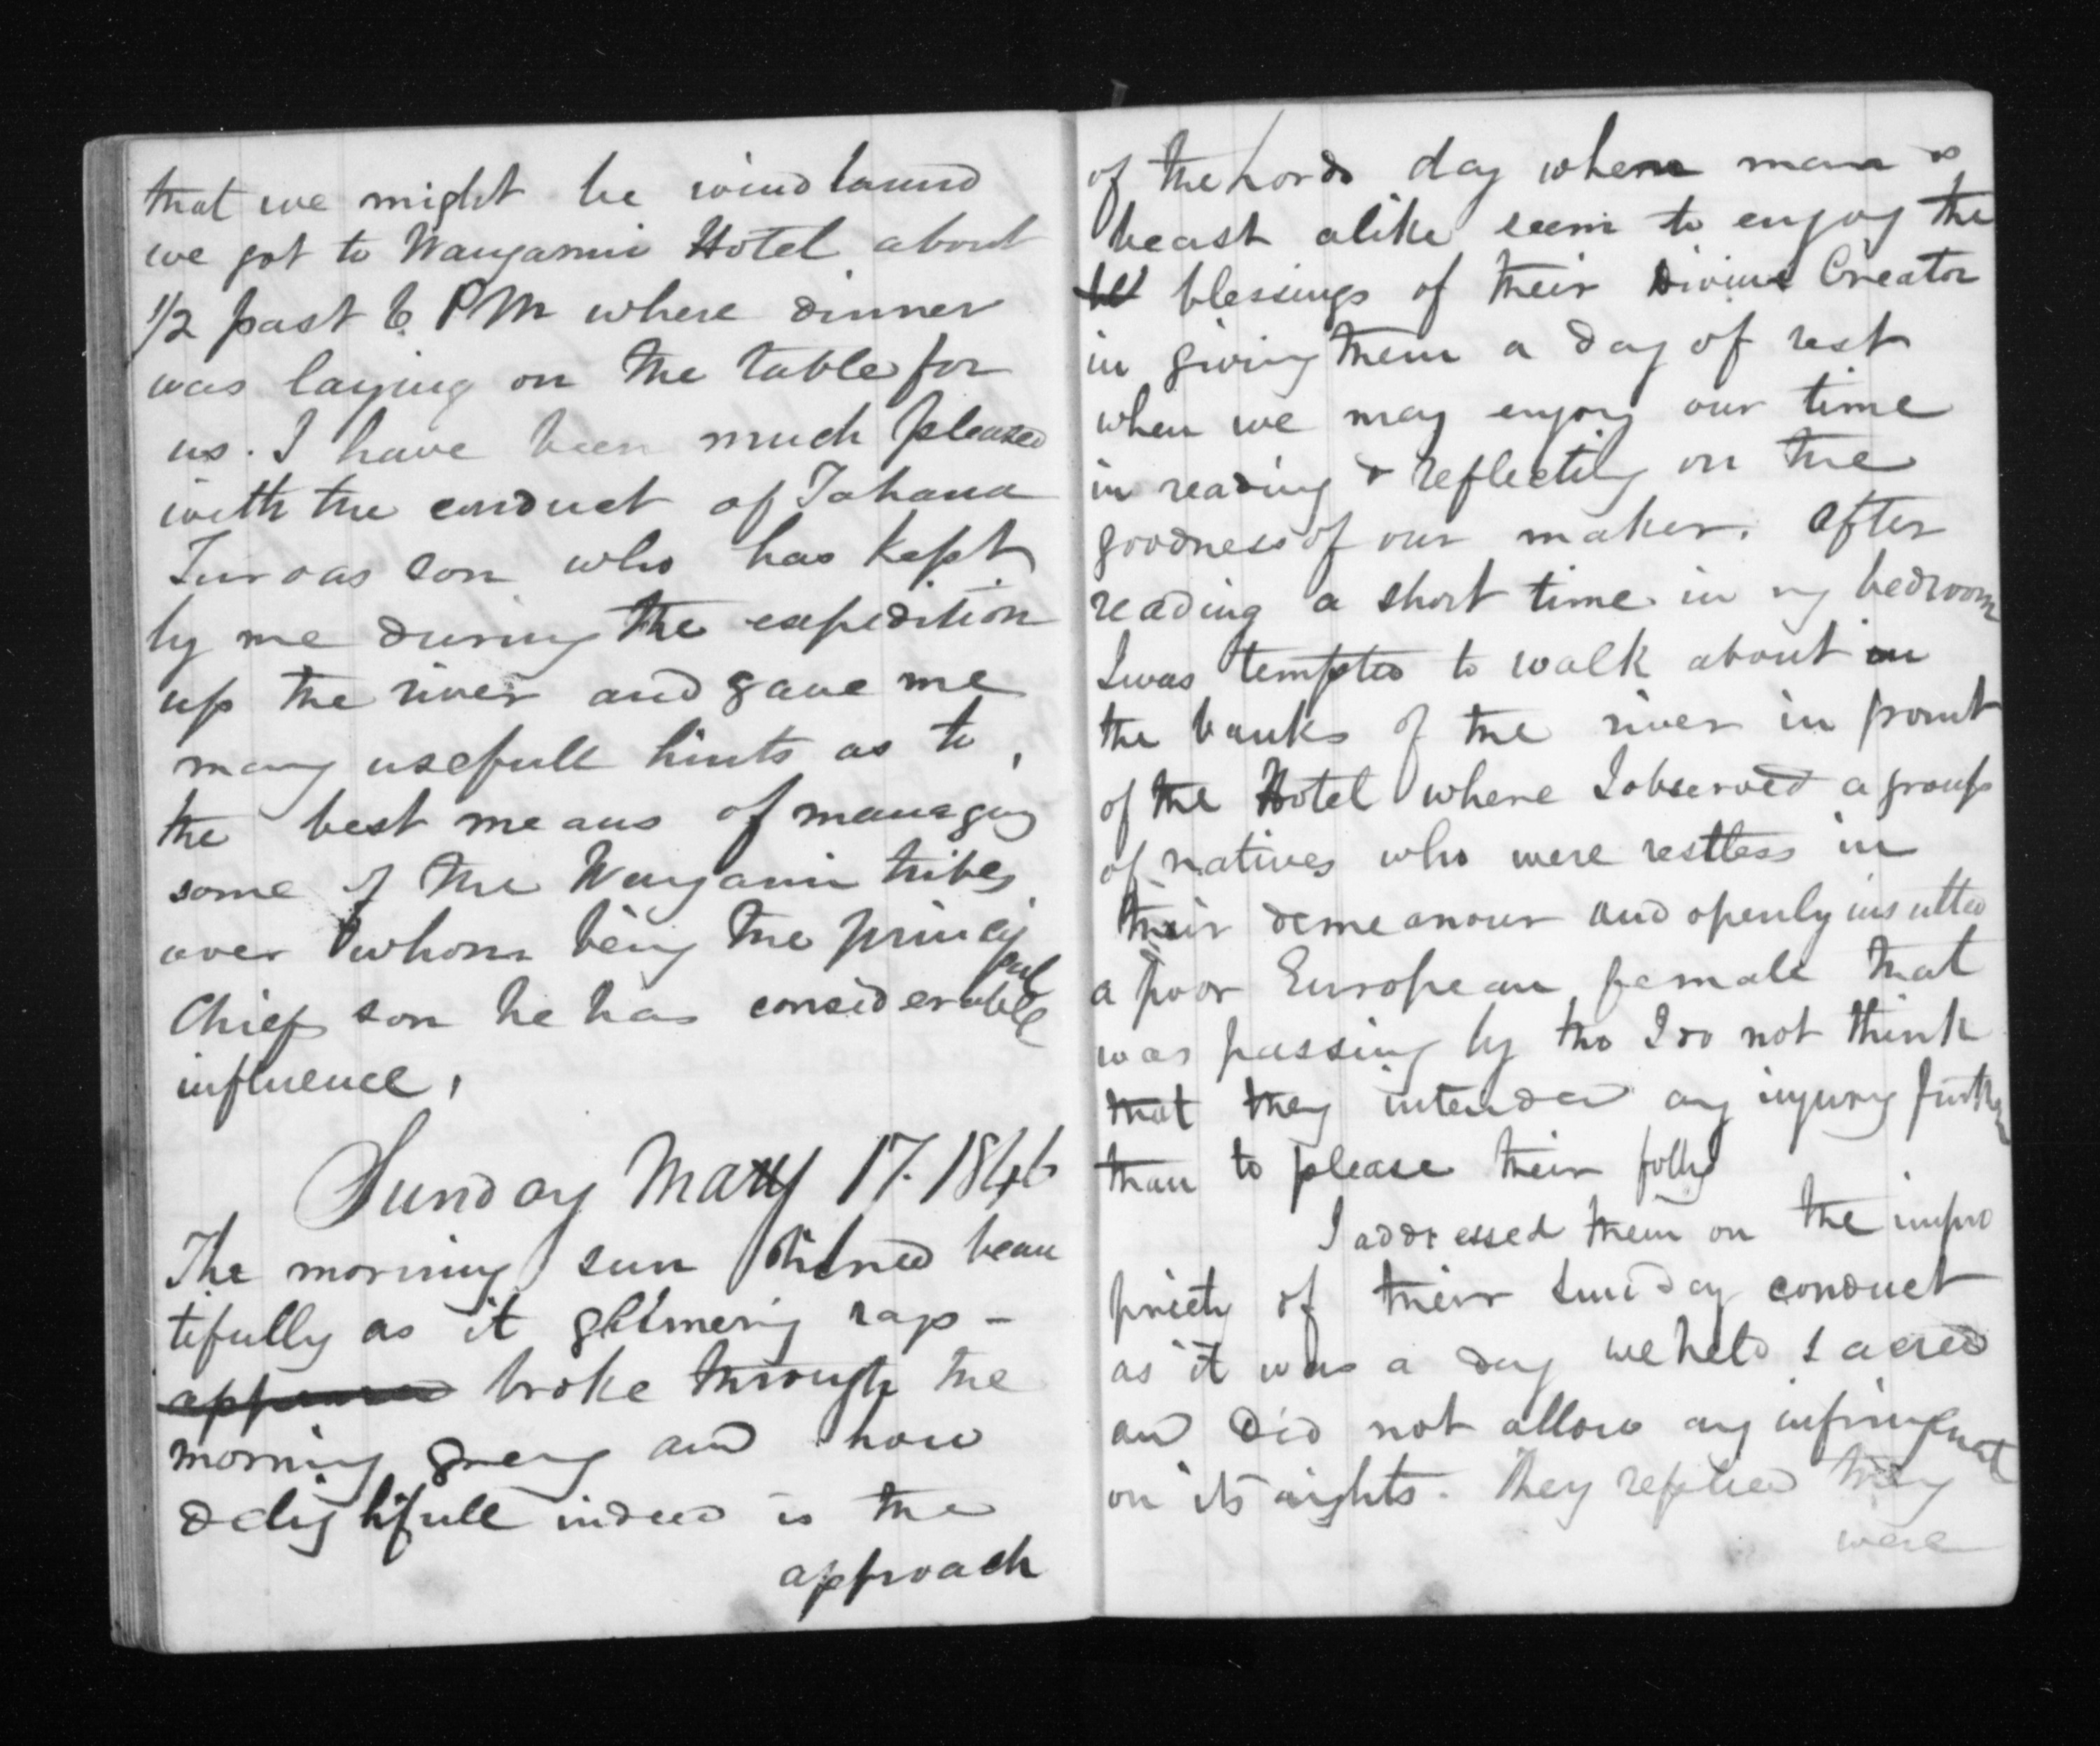 that we might be wind bound
we got to Wanganui Hotel about
1/2 past 6 PM where dinner
was laying on the table for
us. I have been much pleased
with the conduct of Tahana
Turoas son who has kept
by me during the expedition
up the river and gave me
many usefull hints as to,
the best means of managing
some of the Wanganui tribes
over whom being the princi
pal
Chiefs son he has considerable
influence,
Sunday May 17. 1846
The morning sun shined beau
tifully as it glimering rays -
appeared broke through the
morning grey and how
delightfull indeed is the
approach
of the Lords day when man &
beast alike seem to enjoy the
blessings of their Divine Creator
in giving them a day of rest
when we may enjoy our time
in reading & reflecting on the
goodness of our maker. After
reading a short time in my bedroom
I was tempted to walk about on
the banks of the river in front
of the Hotel where I observed a group
of natives who were restless in
their demeanour and openly insulted
a poor European female that
was passing by tho I do not think
that they intended any injury further
than to please their folly
I addressed them on the impro
priety of their Sunday conduct
as it was a day we held sacred
and did not allow any infringment
on its rights. They replied they
were